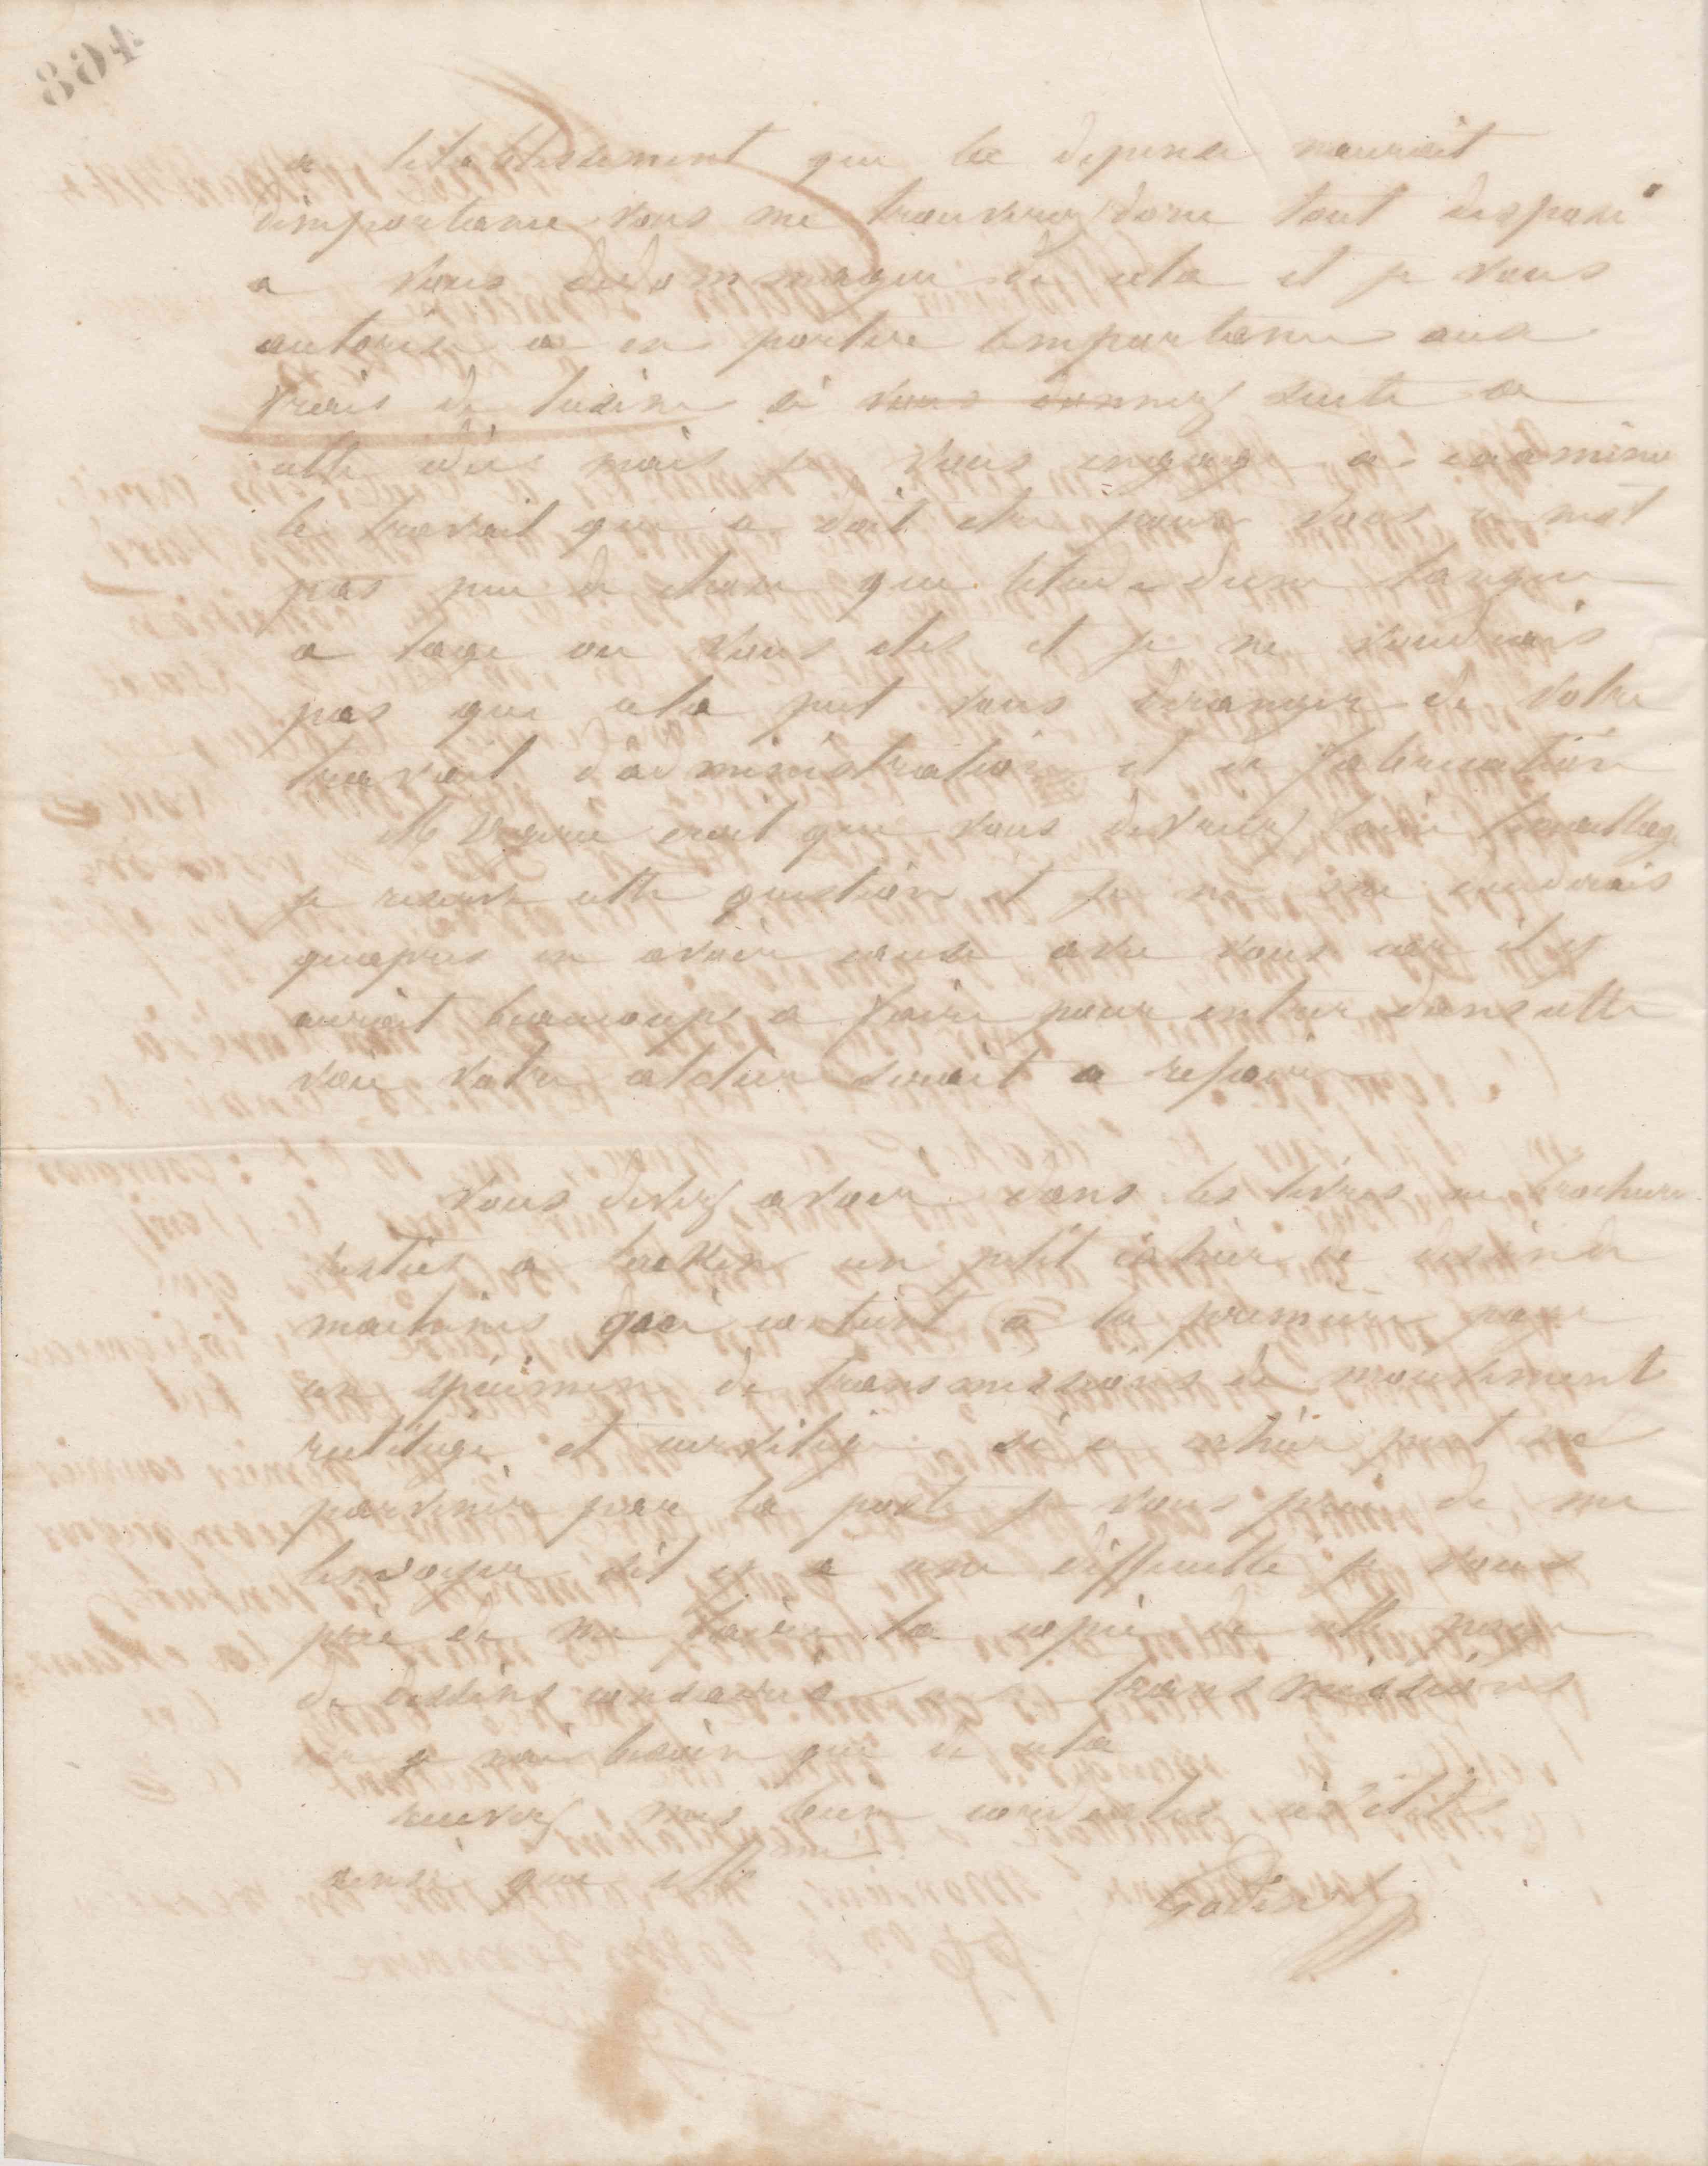 a letablissement que la depense nauroit
dimportance vous me trouverez donc tout dispose
a vous dedommager de cela et je vous
autorise a en porter limportance aux
frais de lusine si vous donnez suite a
cette idée mais je vous engage a examiner
le travail que ce doit etre pour vous ce nest
pas peu de chose que letude dune langue
a lage ou vous etes et je ne voudrais
pas que cela put vous deranger de votre
travail dadministration et de fabrication
M croit que vous devriez faire
je reserve cette question et je ne me
quapres en avoir cause avec vous car il y
auroit beaucoups a faire pour entrer dans cette
voie votre atelier seroit a refaire
vous devez avoir dans les livres ou brochures
restés a Laeken un petit cahier de dessin de
machines qui contient a la premiere page
un spécimen de transmissions de mouvement
rectiligne et curviligne si ce cahier peut me
parvenir par la poste je vous prie de me
lenvoyer sil y a une difficulté je vous
prie de me faire la copie de cette page
de dessins consacrés transmissions
je nai besoin que de cela
recevez mes bien cordiales civilités
ainsi que
Godin